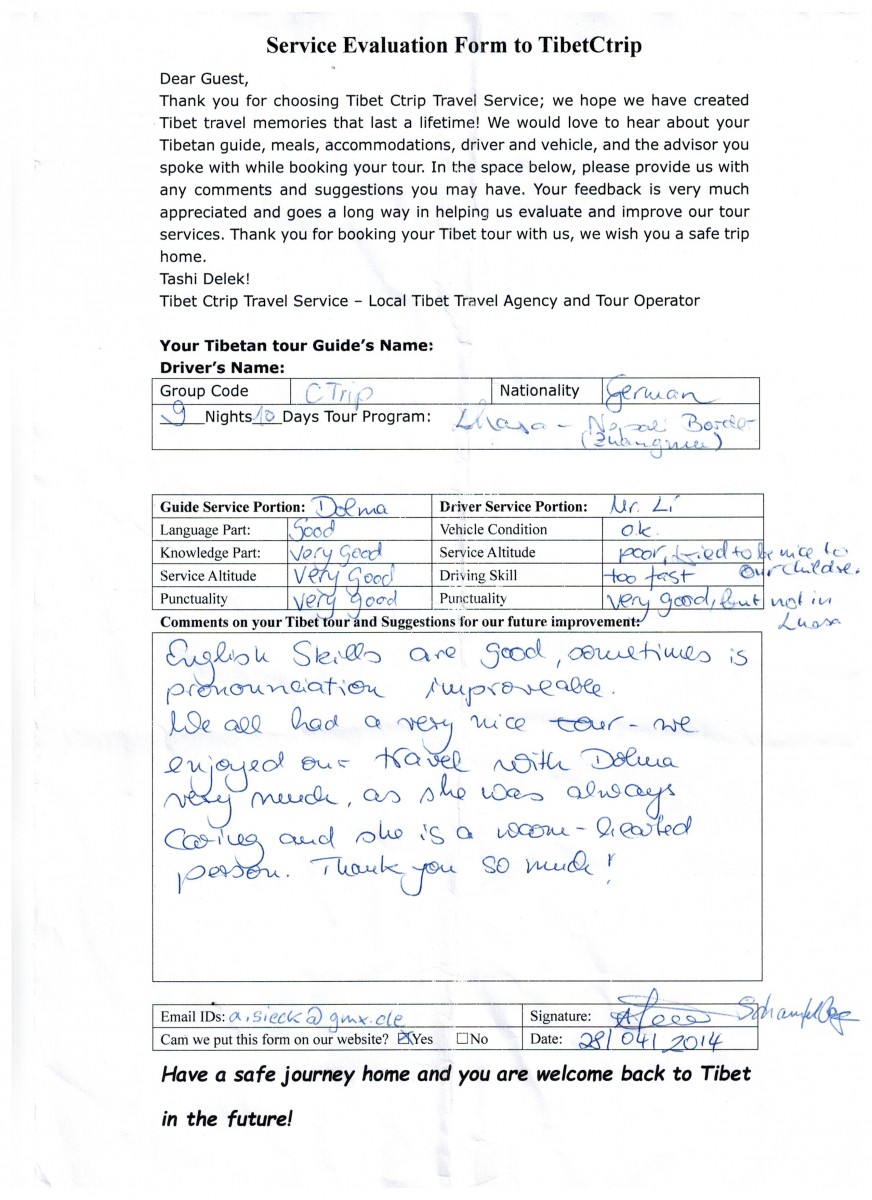 Service Evaluation Form to TibetCtrip
Dear Guest,
Thank you for choosing Tibet Ctrip Travel Service; we hope we have created
Tibet travel memories that last a lifetime! We would love to hear about your
Tibetan guide, meals, accommodations, driver and vehicle, and the advisor you
spoke with while booking your tour. In the space below, please provide us with
any comments and suggestions you may have. Your feedback is very much
appreciated and goes a long way in helping us evaluate and improve our tour
services. Thank you for booking your Tibet tour with us, we wish you a safe trip
home.
Tashi Delek!
Tibet Ctrip Travel Service – Local Tibet Travel Agency and Tour Operator
Your Tibetan tour Guide's Name:
Driver's Name:
Group Code CTrip Nationality German
9 Nights 10 Days Tour Program: Lhasa - Nepal Border
(Zhangmu)
Guide Service Portion: Dolma Driver Service Portion: Mr. Li
Language Part: Good Vehicle Condition o.k.
Knowledge Part: Very Good Service Altitude poor, tried to be nice to
our children.
Service Altitude Very Good Driving Skill too fast
Punctuality very good Punctuality very good, but not in
Lhasa
Comments on your Tibet tour and Suggestions for our future improvement:
English Skills are good, sometimes is
pronounciation improveable.
We all had a very nice tour - we
enjoyed our travel with Dolma
very much, as she was always
caring and she is a warm-hearted
person. Thank you so much!
Email IDs: a.sieck@gmx.de Signature:
Cam we put this form on our website? Yes No Date: 28/04/2014
Have a safe journey home and you are welcome back to Tibet
in the future!